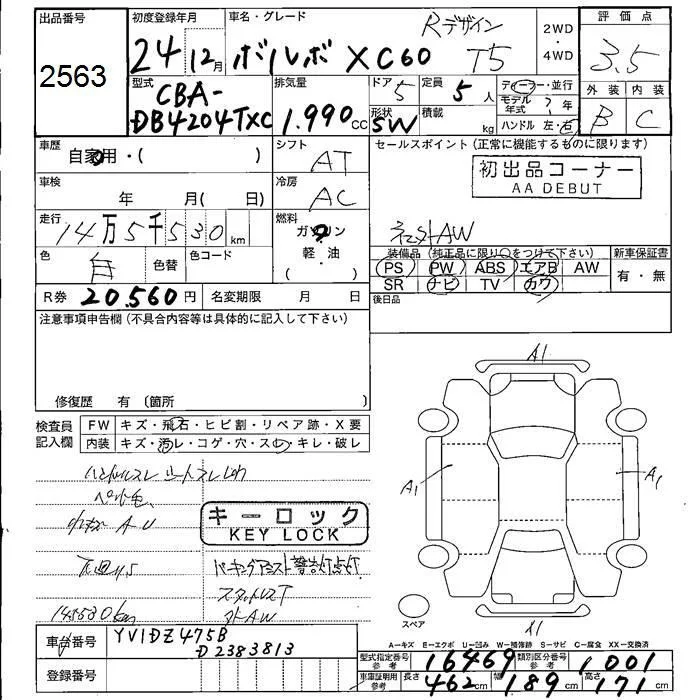 出品番号
2563
初度登録年月
24 12月
車名・グレード
Rデザイン
ボルボ XC60 T5
2WD
・
4WD
評価点
3.5
外装 内装
B C
型式
CBA-
DB4204TXC
排気量
1.990 CC
ドア 5
形状 5W
定員 5 人
積載 kg
ディーラー・並行
モデル年式 ? 年
ハンドル 左・右
車歴
自家用・( )
シフト
AT
セールスポイント(正常に機能するものに限ります)
初出品コーナー
AA DEBUT
車検
年 月( 日)
冷房
AC
走行
14万5千530 km
燃料
ガソリン
軽・油
( ・ )
社外AW
色
白
色替
色コード
装備品(純正品に限り○をつけて下さい)
PS PW ABS エアB AW
SR ナビ TV カワ
新車保証書
有・無
R券 20.560 円
名変期限 月 日
後日品
注意事項申告欄(不具合内容等は具体的に記入して下さい)
修復歴 有 (箇所 )
検査員
記入欄
FW キズ・飛石・ヒビ割・リペア跡・X要
内装 キズ・汚レ・コゲ・穴・スレ・キレ・破レ
ハンドルスレ シートスレ
AU
キーロック
KEY LOCK
パーキングアシスト警告灯点灯
145530km
A1
A1
A1
A1
スペア
A=キズ E=エクボ U=凹み W=補修跡 S=サビ C=腐食 XX=交換済
車台番号
YV1DZ475B
D2383813
登録番号
型式指定番号
参考
16469
類別区分番号
参考
1001
車庫証明用
参考
長さ 462cm 幅 189cm 高さ 171cm